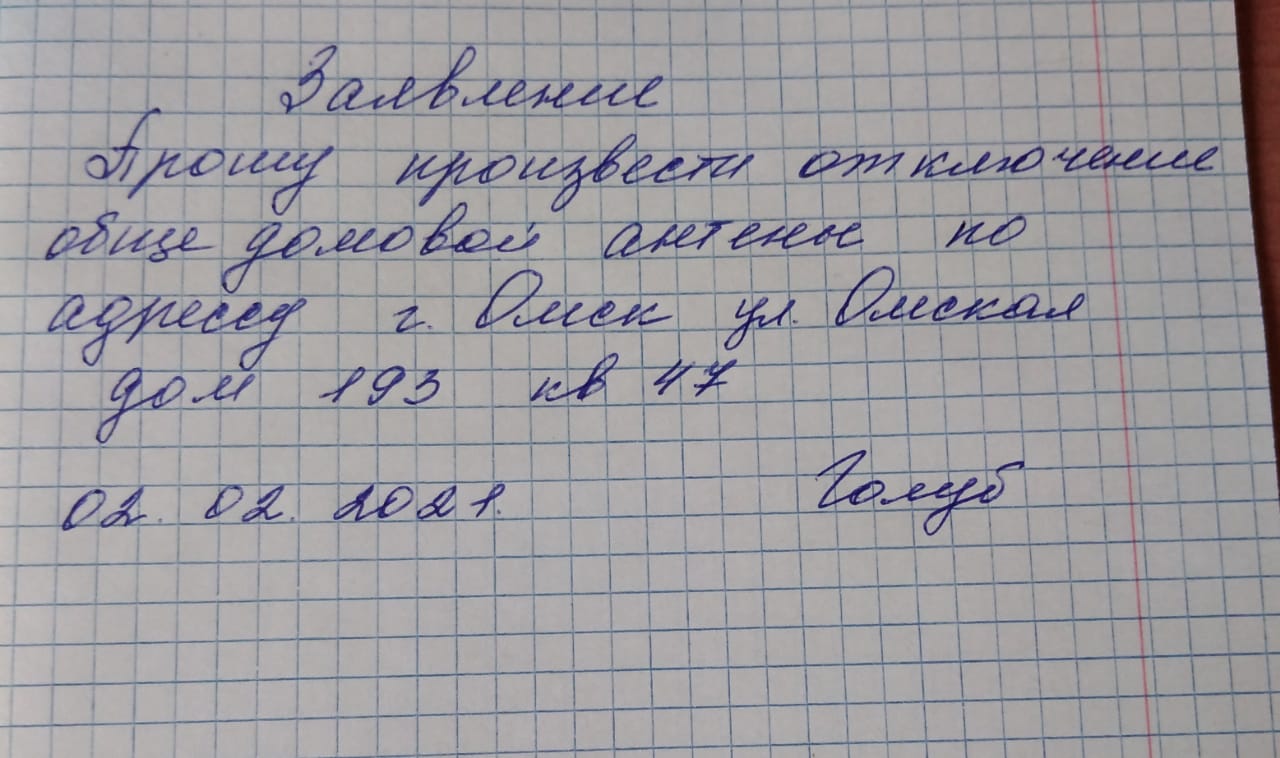 Заявление
Прошу произвести отключение
обще домовой антены по
адрессу г. Омск ул. Омская
дом 193 кв 47
02. 02. 2021. Голуб